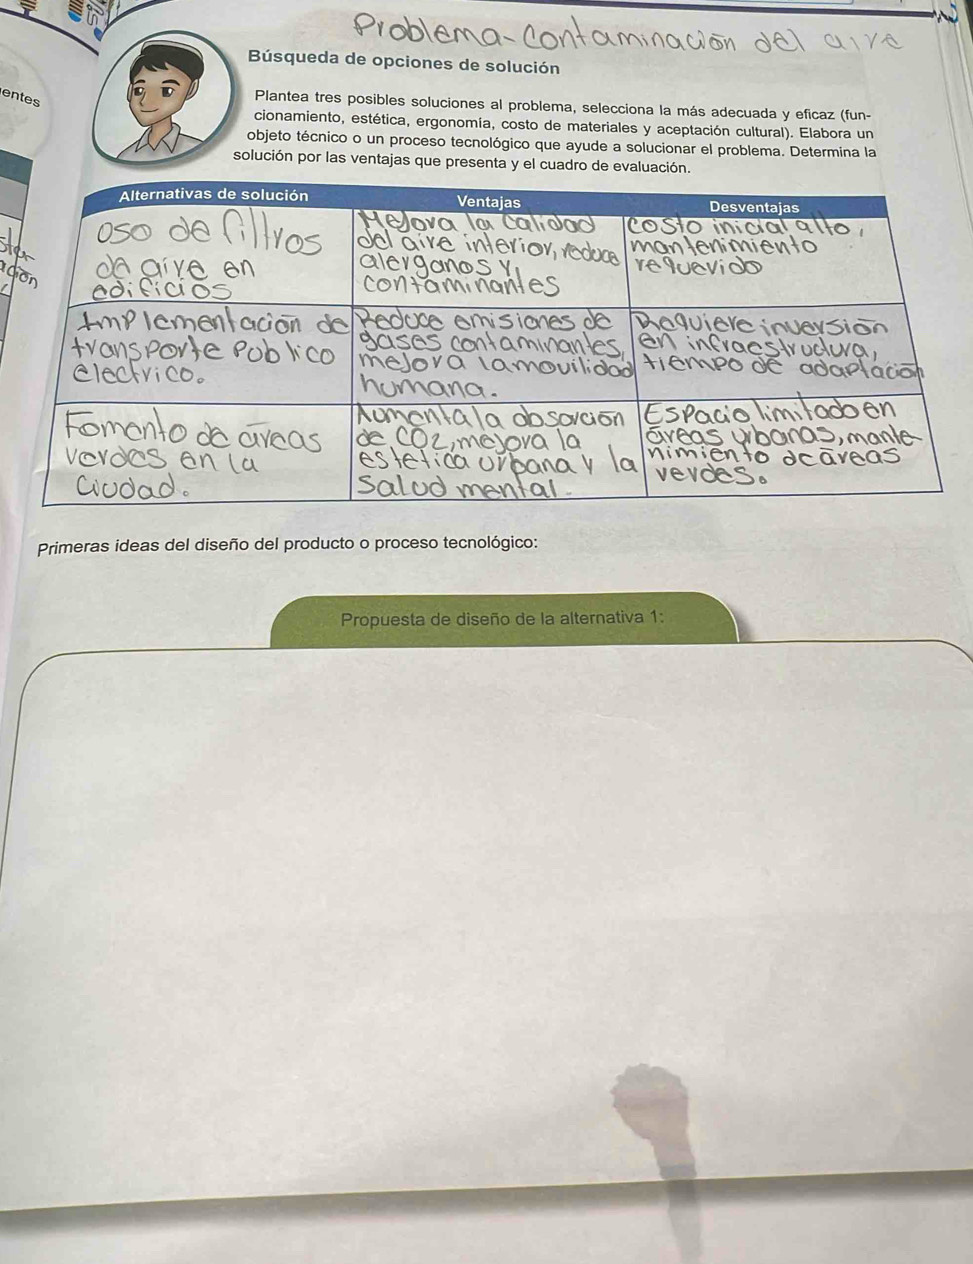 Problema-Contaminación del aire
Búsqueda de opciones de solución
entes
Plantea tres posibles soluciones al problema, selecciona la más adecuada y eficaz (fun-
cionamiento, estética, ergonomía, costo de materiales y aceptación cultural). Elabora un
objeto técnico o un proceso tecnológico que ayude a solucionar el problema. Determina la
solución por las ventajas que presenta y el cuadro de evaluación.
Alternativas de solución
Ventajas
Desventajas
oso de filtros
de aire en
edificios
Mejora la calidad
del aire interior, reduce
alerganos y
contaminantes
costo inicial alto,
mantenimiento
requerido
Implementación de
transporte Publico
electrico.
Reduce emisiones de
gases contaminantes,
mejora la mouilidad
humana.
Requiere inversión
en infraestructura,
tiempo de adaptación
Fomento de areas
verdes en la
Ciudad.
Aumenta la dosorción
de CO2, mejora la
estetica urbana y la
Salud mental.
Espacio limitado en
áreas urbanas, mante-
nimiento de áreas
verdes.
Primeras ideas del diseño del producto o proceso tecnológico:
Propuesta de diseño de la alternativa 1: